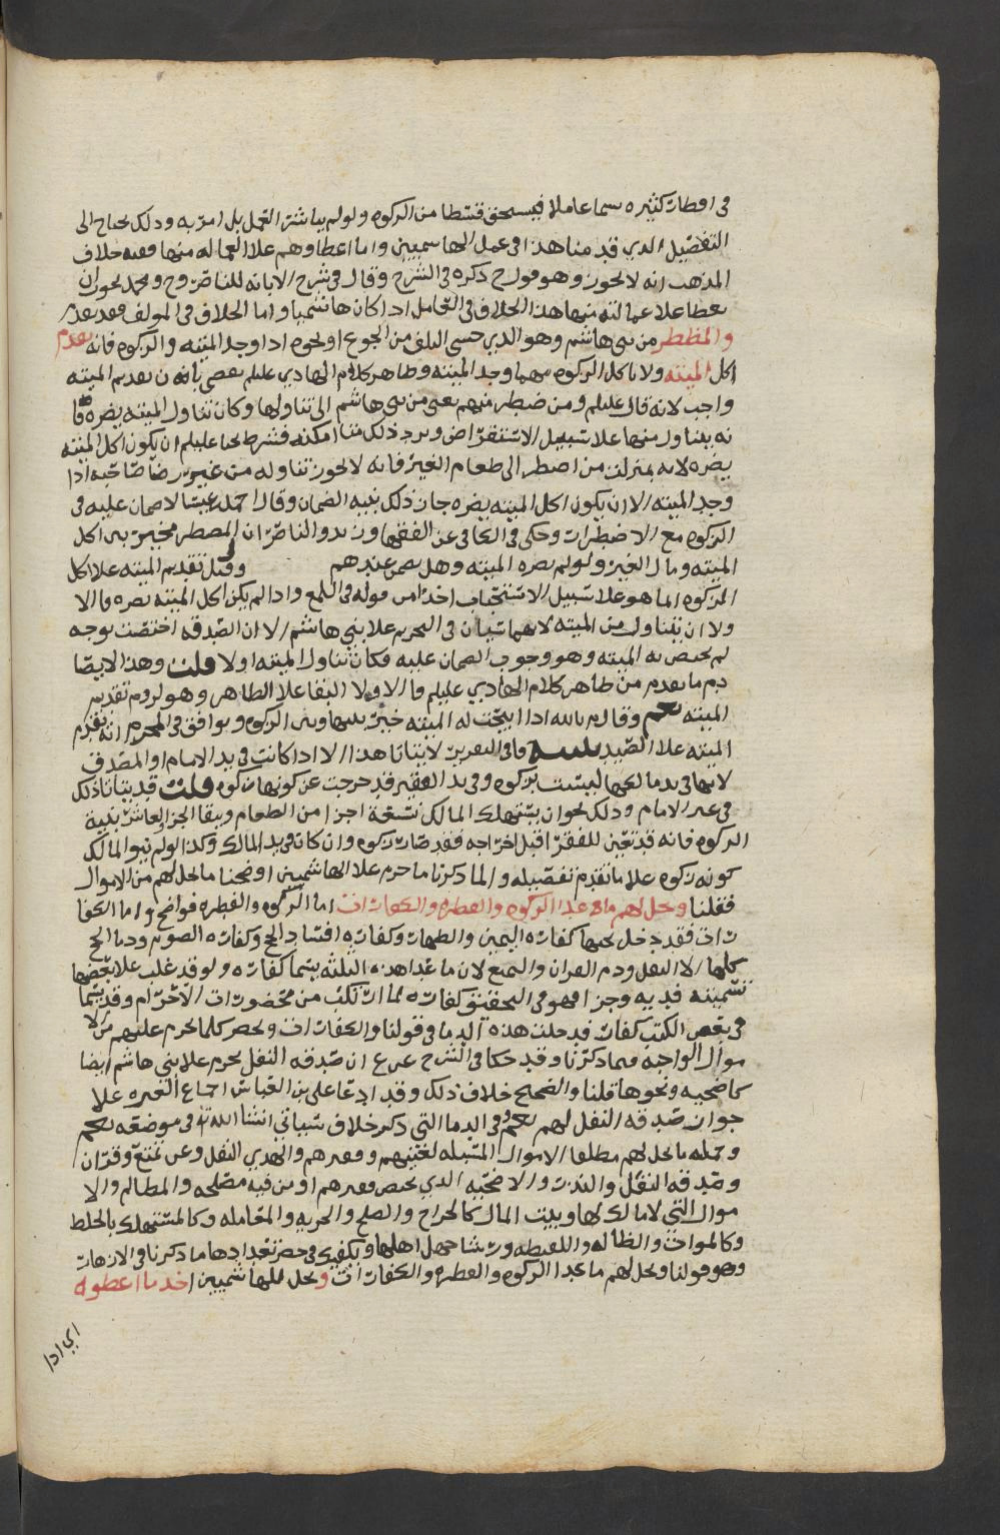 في اقطار كثيره سما عاملا فيستحق قسطا من الزكوه ولو لم يباشر العمل بل امر به وذلك يحتاج الى
التفصيل الذي قدمنا هذا في عمل الهاشميين واما اعطاوهم علا العماله منها ففيه خلاف
المذهب انه لا يجوز وهو قول ح ذكره في الشرح وقال في شرح الابانه للناصر وح ومحمد يجوز ان
يعطا علا عمالته منها هذا الخلاف في العامل اذا كان هاشميا واما الخلاف في المولف فقد تقدم
والمظطر من بني هاشم وهو الذي خشي التلف من الجوع او نحوه اذا وجد الميته والزكوه فانه يقدم
اكل الميته ولا ياكل الزكوه مهما وجد الميته وظاهر كلام الهادي عليلم يقضي بانه ن تقديم الميته
واجب لانه قال عليلم ومن ضطر منهم يعني من بني هاشم الى تناولها وكان تناول الميته يضره فا
نه يتناول منها علا سبيل الاستقراض ويرد ذلك متا امكنه فشرط يحيا عليلم ان يكون اكل الميته
يضره لانه بمنزلت من اضطر الى طعام الغير فانه لا يجوز تناوله من غير رضا صاحبه اذا
وجد الميته الا ان يكون اكل الميته يضره جاز ذلك بنيه الضمان وقال احمد بن عيسا لا ضمان عليه في
الزكوه مع الاضطرار وحكى في الكافي عن الفقها وزيد والناصر ان المضطر مخير بين اكل
الميته ومال الغير ولو لم يضره الميته وهل يضمن عندهم وقيل تقديم الميته علا اكل
الزكوه انما هو علا سبيل الاستحباب اخذا من قوله في اللمع واذا لم يكن اكل الميته يضره فالا
ولا ان يتناول من الميته لانهما سيان في التحريم علا بني هاشم لان الصدقه اختصت بوجه
لم يختص به الميته وهو وجوب الضمان عليه فكان تناول الميته اولا قلت وهذا لا يصا
دم ما تقدم من ظاهر كلام الهادي عليلم فالاولا البقا علا الظاهر وهو لزوم تقديم
الميته نعم وقال م بالله اذا ابيحت له الميته خير بينها وبين الزكوه ويوافق في المحرم انه يقدم
الميته علا الصيد تنبيه قال في التقرير لا يتاتا هذا الا اذا كانت في يد الامام او المصدق
لانها في يد مالكها ليست بزكوه وفي يد الفقير قد خرجت عن كونها زكوه قلت قد يتاتا ذلك
في غير الامام وذلك نحو ان يستهلك المالك تسعة اجزا من الطعام ويبقا الجزا العاشر بنية
الزكوه فانه قد تعين للفقرا قبل اخراجه فقد صارت زكوه وان كان في يد المالك وكذا لو لم ينو المالك
كونه زكوه علا ما تقدم تفصيله ولما ذكرنا ما حرم علا الهاشميين اوضحنا ما يحل لهم من الاموال
فقلنا ويحل لهم ما عدا الزكوه والفطره والكفارات اما الزكوه والفطره فواضح واما الكفا
رات فقد دخل تحتها كفاره اليمين والظهار وكفاره افساد الحج وكفاره الصوم ودما الحج
كلها الا النفل ودم القران والتمتع لان ما عدا هذه الثلثه يسما كفاره ولو قد غلب علا بعضها
تسميته فديه وجزا فهو في التحقيق كفاره لما ارتكب من محضورات الاحرام وقد يسما
في بعض الكتب كفارت فدخلت هذه الدما في قولنا والكفارات ويحصر كلما يحرم عليهم من الا
موال الواجبه فيما ذكرنا وقد حكا في الشرح عن ع ان صدقه النفل يحرم علا بني هاشم ايضا
كاضحيه ونحوها قلنا والصحيح خلاف ذلك وقد ادعا علي بن العباس اجماع العتره علا
جواز صدقه النفل لهم نعم وفي الدما التي ذكر خلاف سياتي انشا الله تع في موضعه نعم
وجمله ما يحل لهم مطلقا الاموال المسبله لغنيهم وفقيرهم والهدي النفل وعن تمتع وقران
وصدقه النفل والنذر والاضحيه الذي يختص فقيرهم او من فيه مصلحه والمظالم والا
موال التي لا مالك لها وبيت المال كالخراج والصلح والجزيه والمعامله وكالمستهلك بالخلط
وكالموات والظاله واللقطه وما جهل اهلها ويكفيك في حصر تعدادها ما ذكرنا في الازهار
وهو قولنا ويحل لهم ما عدا الزكوه والفطره والكفارات ويحل للهاشميين اخذ ما اعطوه
اي اذا